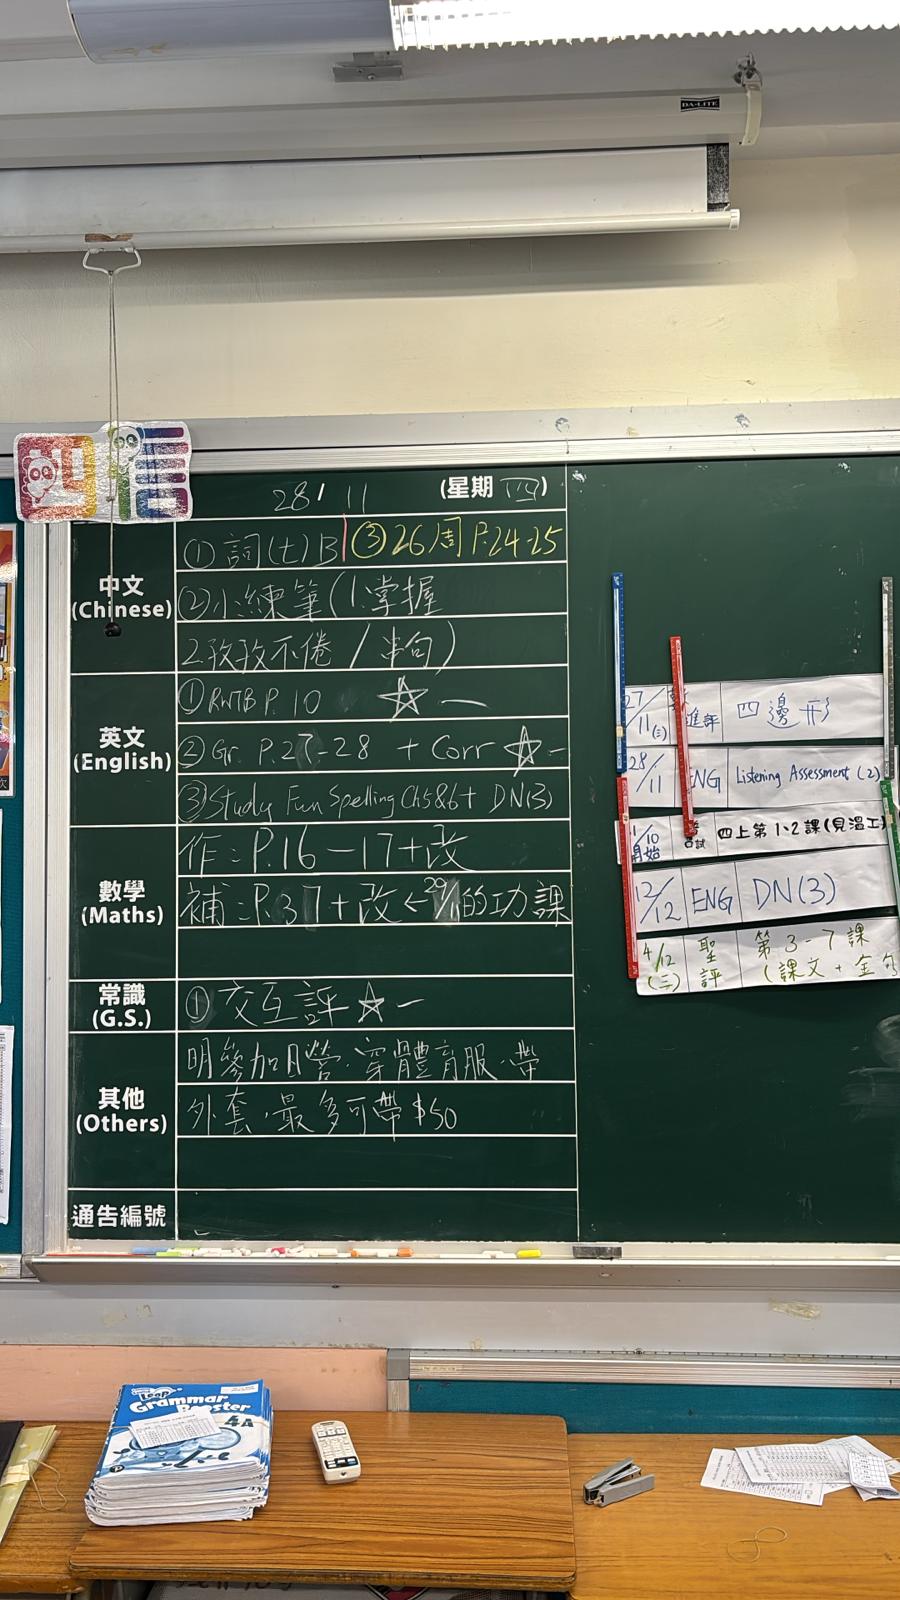 DA-LITE
28/11 (星期 四)
中文
(Chinese)
① 詞(七)B ③ 26周 P.24-25
② 小練筆(1.掌握
2.孜孜不倦 / 串句)
英文
(English)
① RWTB P. 10 ☆ —
② Gr. P.27-28 + Corr ☆ —
③ Study Fun Spelling Ch5&6 + DN(3)
數學
(Maths)
作:P.16-17+改
補:P.37+改←29/11的功課
常識
(G.S.)
① 交互評☆ —
其他
(Others)
明參加日營.穿體育服.帶
外套.最多可帶$50
通告編號
27/11(三) 進評 四邊形
28/11 ENG Listening Assessment (2)
1/10開始 試 四上第1、2課(見溫工
12/12 ENG DN(3)
4/12 (三) 聖評 第3-7課
(課文+金句
Grammar Booster
4A